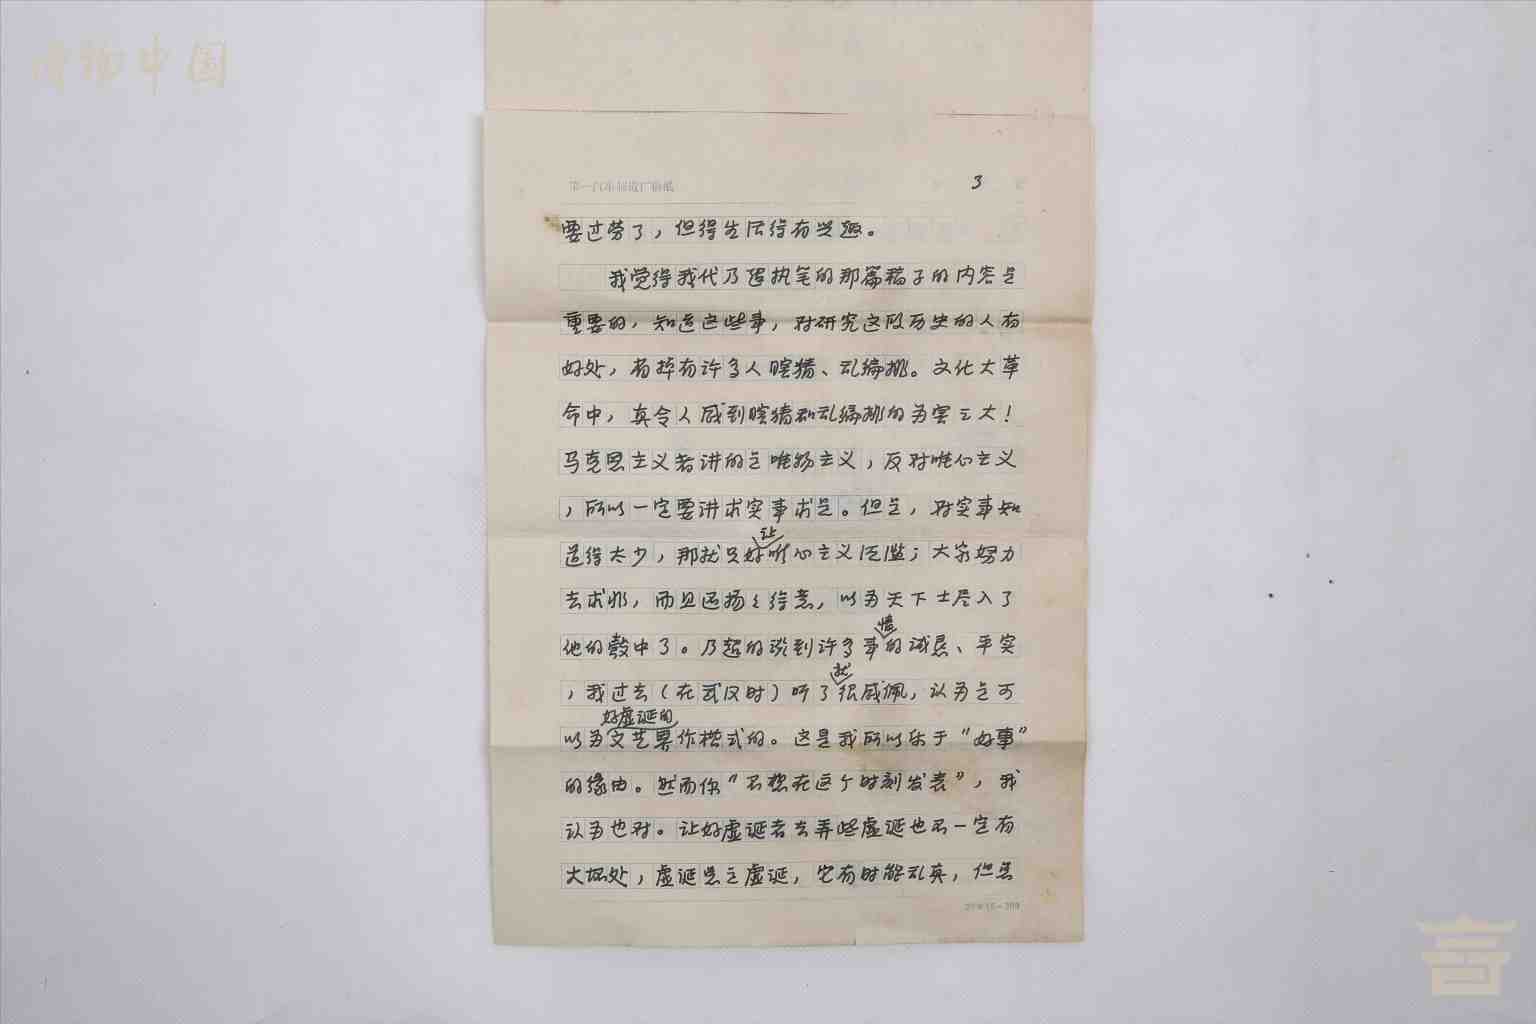 博物中国
第一汽车制造厂稿纸
3
要过劳了，但得生活得有兴趣。
我觉得我代乃超执笔的那篇稿子的内容是
重要的，知道这些事，对研究这段历史的人有
好处，省掉有许多人瞎猜、乱编排。文化大革
命中，真令人感到瞎猜和乱编排的为害之大！
马克思主义者讲的是唯物主义，反对唯心主义
，所以一定要讲求实事求是。但是，对实事知
道得太少，那就只好让唯心主义泛滥；大家努力
去求邪，而且还扬扬得意，以为天下士尽入了
他的彀中了。乃超的谈到许多事情的诚恳、平实
，我过去（在武汉时）听了就很感佩，认为是可
以为好虚诞的文艺界作模式的。这是我所以乐于“好事”
的缘由。然而你“不想在这个时刻发表”，我
认为也对。让好虚诞者去弄些虚诞也不一定有
大坏处，虚诞总是虚诞，它有时能乱真，但是
20×15=300